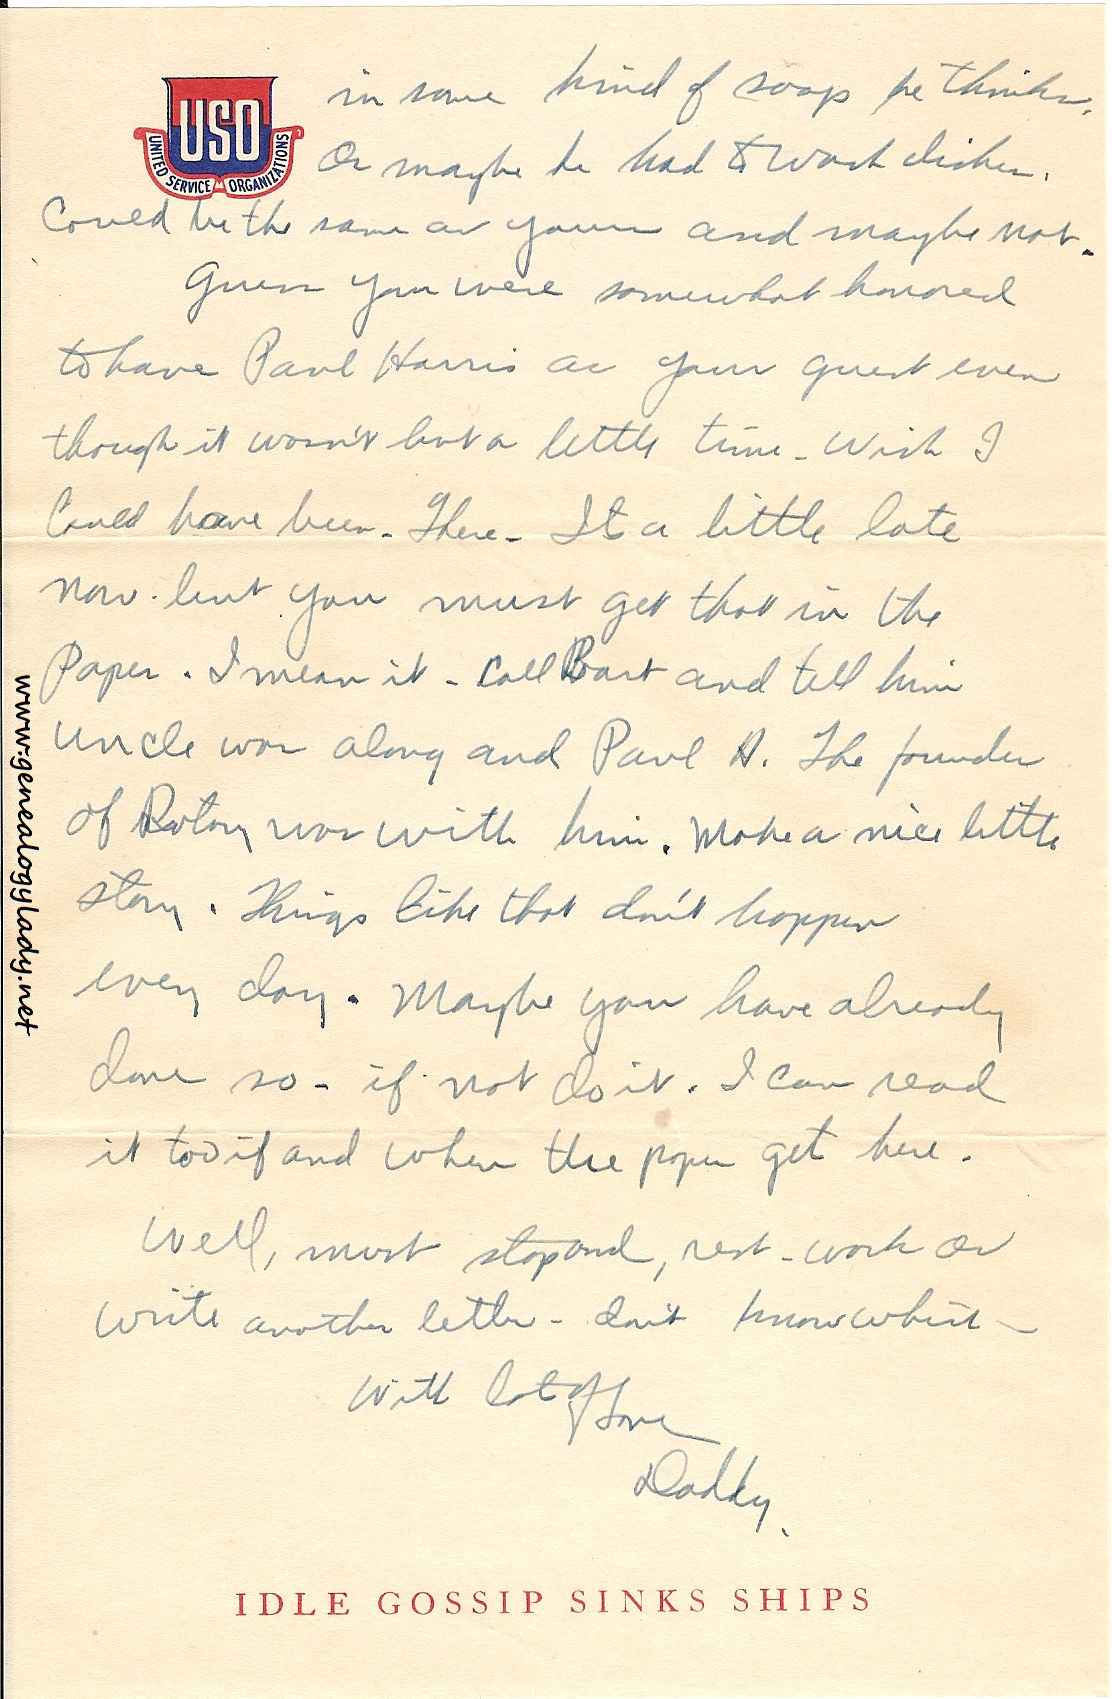 USO
UNITED SERVICE ORGANIZATIONS
in some kind of soap he thinks.
Or maybe he had to wash dishes.
Could be the same as yours and maybe not.
Guess you were somewhat honored
to have Paul Harris as your guest even
though it wasn't but a little time - Wish I
Could have been - There - Its a little late
now - but you must get that in the
Paper. I mean it - Call Bart and tell him
Uncle was along and Paul H. The founder
of Rotary was with him. Make a nice little
story. Things like that don't happen
every day. Maybe you have already
done so - if not do it. I can read
it too if and when the paper get here.
Well, must stop and, rest - work or
write another letter - don't know which -
With lot of Love
Daddy.
IDLE GOSSIP SINKS SHIPS
www.genealogylady.net